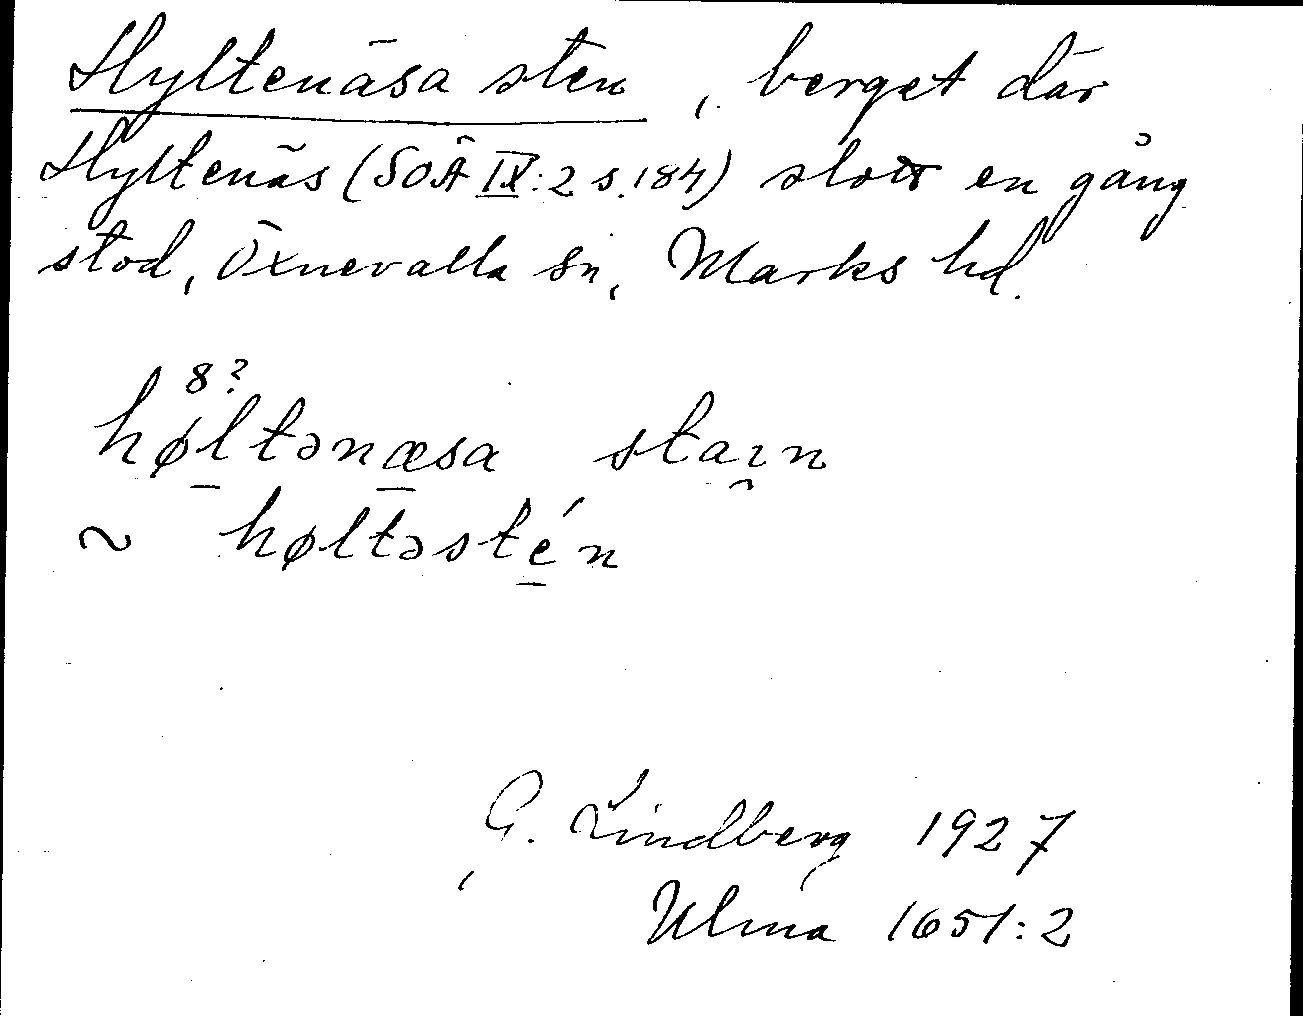 Hyltenäsa sten, berget där
Hyltenäs (SOÄ IX:2 s.184) slott en gång
stod, Öxnevalla sn, Marks hd.
8?
hø̱ltənæ̱sa staı̯n
~ høltəsté̱n
G. Lindberg 1927
Ulma 1651:2